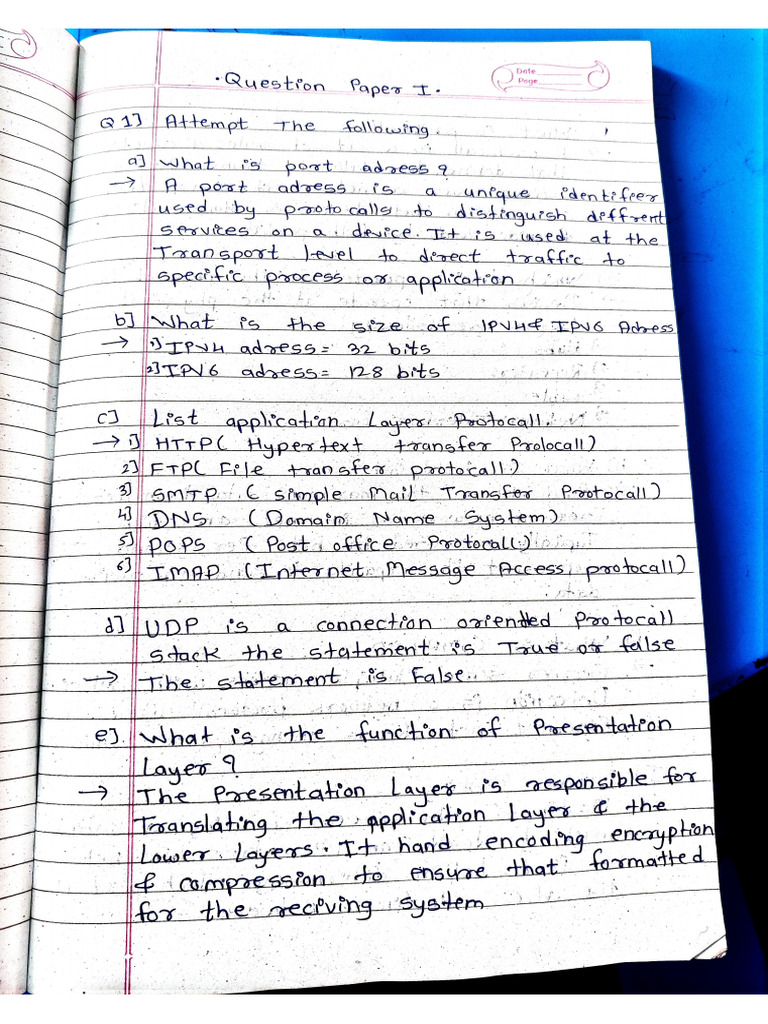 Date
Page
• Question Paper I.
Q 1] Attempt The following.
a] What is port adress?
→ A port adress is a unique identifier
used by protocalls to distinguish diffrent
services on a device. It is used at the
Transport level to direct traffic to
specific process or application
b] What is the size of IPV4 & IPV6 Adress
→ 1) IPV4 adress = 32 bits
2] IPV6 adress = 128 bits
c] List application Layer Protocall.
→ 1] HTTP ( Hypertext transfer Prolocall)
2] FTP ( File transfer protocall)
3] SMTP ( Simple Mail Transfer Protocall)
4] DNS (Domain Name System)
5] POPS (Post office Protocall)
6] IMAP (Internet Message Access protocall)
d] UDP is a connection oriented Protocall
stack the statement is True or false
→ The statement is False.
e]. What is the function of Presentation
Layer?
→ The Presentation Layer is responsible for
Translating the application Layer & the
Lower Layers. It hand encoding encryption
& compression to ensure that formatted
for the reciving system